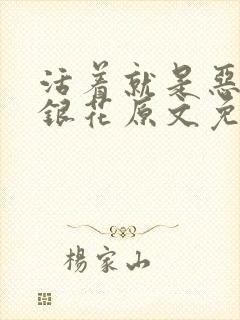 活着就是惡
銀花原文免
楊家山